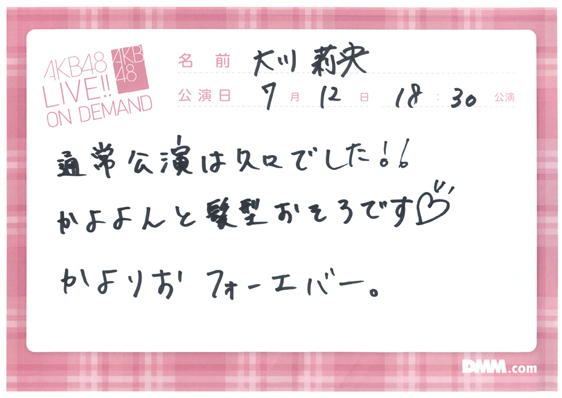 AKB48
LIVE!!
ON DEMAND
AKB
48
名前 大川莉央
公演日 7月12日 18:30 公演
通常公演は久々でした!!
かよよんと髪型おそろです♡
かよりお フォーエバー。
DMM.com